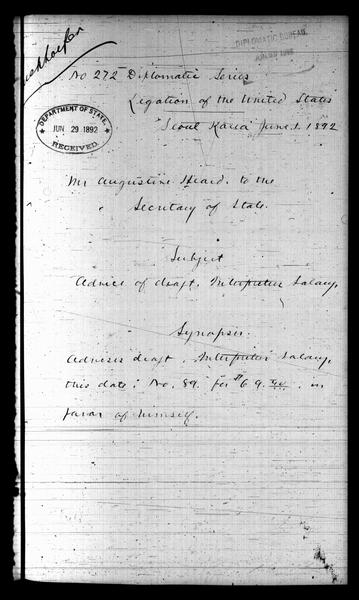 DIPLOMATIC BUREAU
No 272 Diplomatic Series
Legation of the United States
Seoul Korea June 1. 1892
DEPARTMENT OF STATE
JUN 29 1892
RECEIVED
Mr Augustine Heard. to the
Secretary of State.
Subject
Advice of draft. Interpreter Salary,
Synopsis.
Advises draft. Interpreter Salary,
this date, No. 89. for $69.
in
favor of himself.